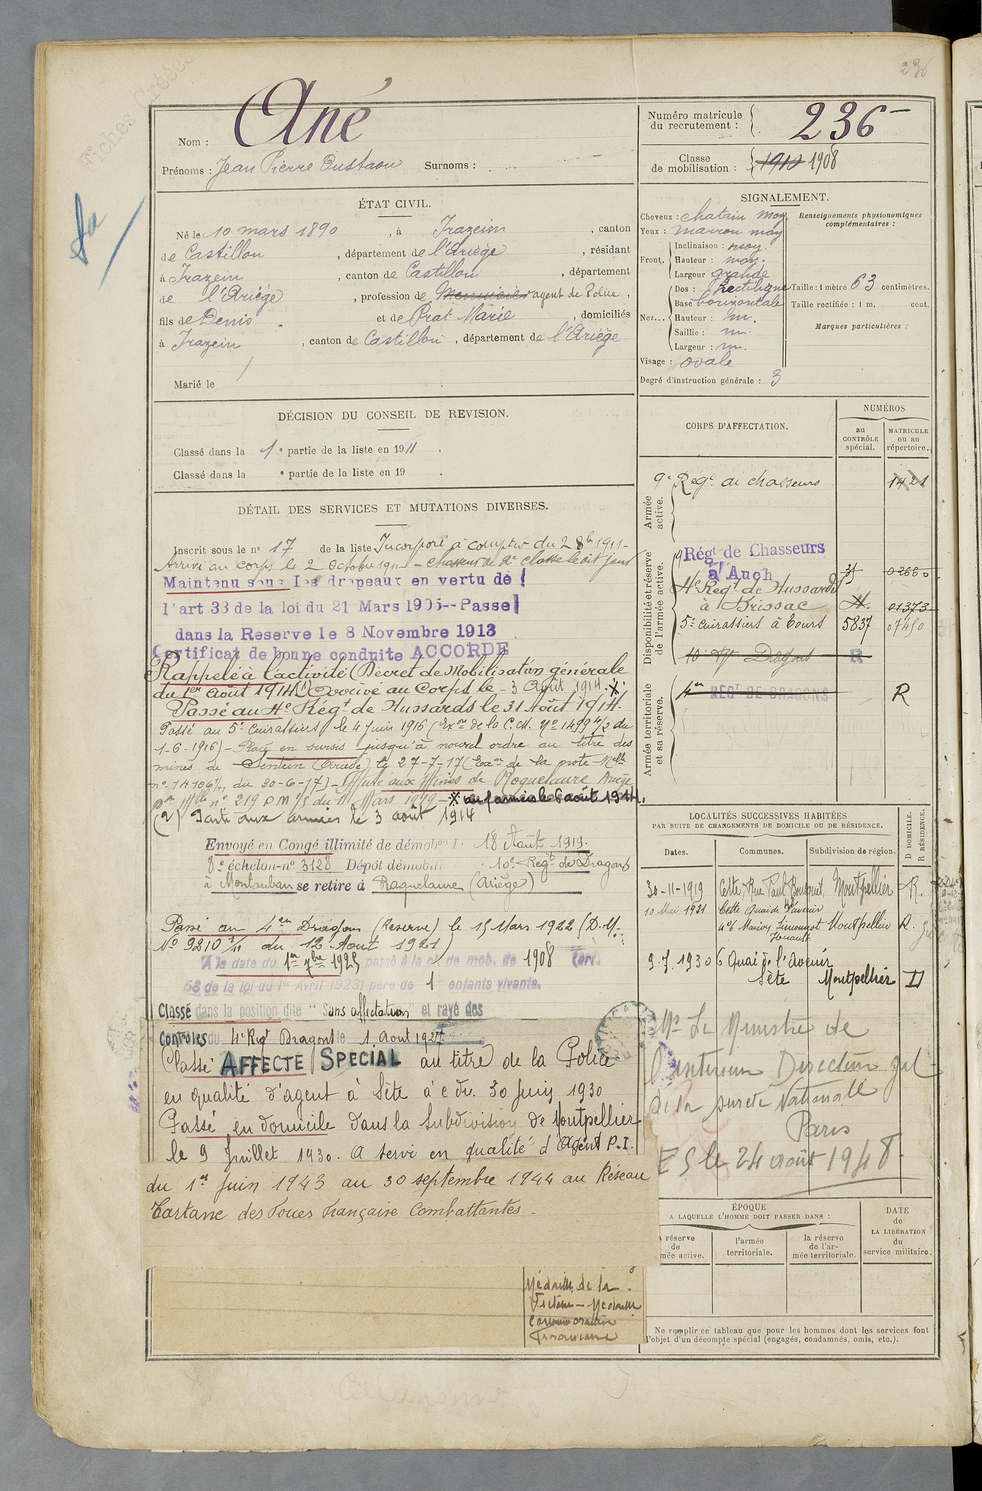 236
Fiches
Nom : Ané
Prénoms : Jean Pierre Gustave Surnoms :
ÉTAT CIVIL.
Né le 10 mars 1890, à Irazein, canton
de Castillon, département de l'Ariège, résidant
à Irazein, canton de Castillon, département
de l'Ariège, profession de Menuisier agent de Police,
fils de Denis et de Prat Marie, domiciliés
à Irazein, canton de Castillon, département de l'Ariège
Marié le
DÉCISION DU CONSEIL DE REVISION.
Classé dans la 1e partie de la liste en 1911.
Classé dans la e partie de la liste en 19 .
DÉTAIL DES SERVICES ET MUTATIONS DIVERSES.
Inscrit sous le n° 17 de la liste Incorporé à compter du 2 8bre 1911
Arrivé au corps le 2 Octobre 1911 Chasseur de 2e classe le dit jour
Maintenu sous les drapeaux en vertu de
l'art 33 de la loi du 21 Mars 1905 -- Passe
dans la Reserve le 8 Novembre 1913
Certificat de bonne conduite ACCORDE
Rappelé à l'activité (Décret de Mobilisation générale
du 1er Août 1914) Arrivé au Corps le 3 Août 1914.
Passé au 4e Régt de Hussards le 31 Août 1914.
Passé au 5e Cuirassiers le 4 Juin 1916 (Exon de la C.M. No 1499 4/2 du
1-6-1916) - Placé en sursis jusqu'à nouvel ordre au titre des
mines de Sentein (Ariège) le 27-7-17 (Exon de la note Melle
du 30-6-17) - Affecté aux Mines de Roquelaure Ariège
n° 219 P.M/S du 11 Mars 1919 - aux armées le 6 août 1914.
(2) Parti aux armées le 3 août 1914
Envoyé en Congé illimité de démobon le 18 Août 1919.
8e échelon - n° 3128 Dépôt démob. 10e Régt de Dragons
à Montauban se retire à Roquelaure (Ariège)
Passé au 4em Dragons (Réserve) le 15 Mars 1922 (D.M.
No 9210 1/11 du 12 Août 1921)
A la date du 1er 7bre 1925 passé à la cl. de mob. de 1908 (art.
58 de la loi du 1er Avril 1923) père de 1 enfants vivants.
Classé dans la position dite "Sans affectation" et rayé des
Contrôles du 4e Regt Dragons le 1 Août 1927
Classé AFFECTE SPECIAL au titre de la Police
en qualité d'agent à Sète à c du 30 Juin 1930
Passé en domicile dans la Subdivision de Montpellier
le 9 Juillet 1930. A servi en qualité d'Agent P.I.
du 1er Juin 1943 au 30 septembre 1944 au Réseau
Tartane des Forces Française Combattantes.
Médaille de la
Victoire - Médaille
Commémorative
Française
Numéro matricule du recrutement : 236
Classe de mobilisation : 1910 1908
SIGNALEMENT.
Cheveux : chatain moy
Yeux : marron moy
Front. Inclinaison : moy.
Hauteur : moy.
Largeur grande
Nez... Dos : Rectiligne
Base horizontale
Hauteur : m.
Saillie : m.
Largeur : m.
Visage : ovale
Degré d'instruction générale : 3
Renseignements physionomiques complémentaires :
Taille : 1 mètre 63 centimètres.
Taille rectifiée : 1 m. cent.
Marques particulières :
CORPS D'AFFECTATION.
NUMÉROS
au CONTRÔLE spécial.
MATRICULE ou au répertoire.
Armée active.
9e Régt de chasseurs 1421
Disponibilité et réserve de l'armée active.
9e Régt de Chasseurs
à Auch 02660
4e Régt de Hussards
à Brissac 01373
5e Cuirassiers à Tours 5837 07450
10 Rgt Dragons R
Armée territoriale et sa réserve.
4em REGt DE DRAGONS R
LOCALITÉS SUCCESSIVES HABITÉES
PAR SUITE DE CHANGEMENTS DE DOMICILE OU DE RÉSIDENCE.
Dates. Communes. Subdivision de région. D DOMICILE. R RÉSIDENCE.
30-11-1919 Cette, Rue Paul Bousquet, Montpellier R.
10 Mai 1921 Cette Quai de l'avenir
Hérault Montpellier R.
9.7.1930 6 Quai de l'Avenir
Sète Montpellier D
Mr Le Ministre de
l'intérieur Directeur gal
de la sureté Nationale
Paris
le 24 août 1948
ÉPOQUE
A LAQUELLE L'HOMME DOIT PASSER DANS :
réserve de mée active.
l'armée territoriale.
la réserve de l'armée territoriale.
DATE de LA LIBÉRATION du service militaire.
Ne remplir ce tableau que pour les hommes dont les services font
l'objet d'un décompte spécial (engagés, condamnés, omis, etc.).